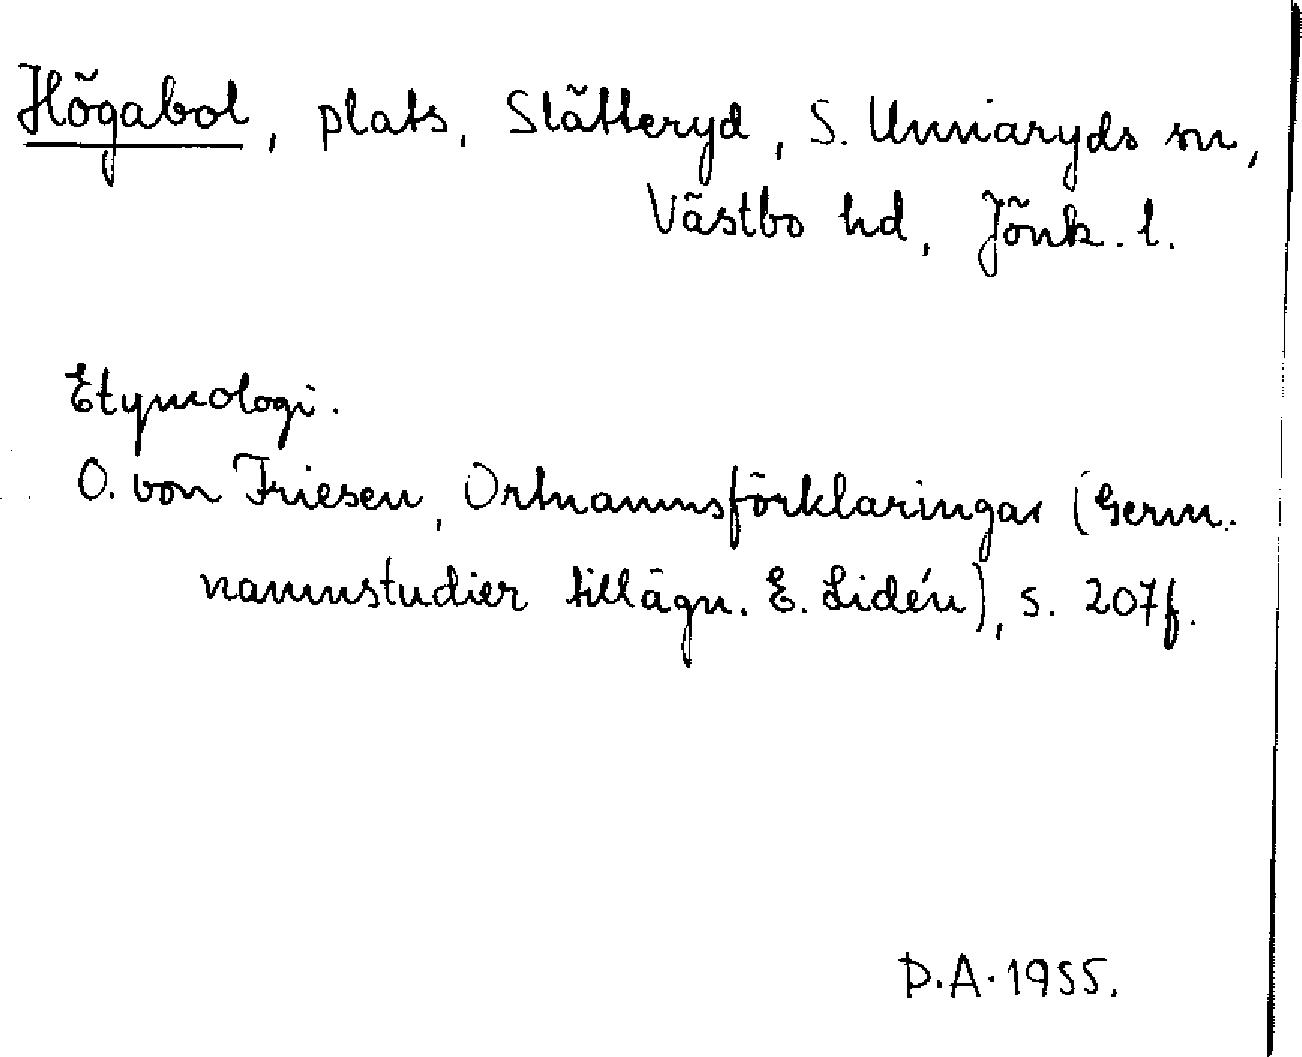 Högabol, plats, Slätteryd, S. Unnaryds sn,
Västbo hd, Jönk. l.
Etymologi.
O. von Friesen, Ortnamnsförklaringar (Germ.
namnstudier tillägn. E. Lidén), s. 207f.
D.A. 1955.